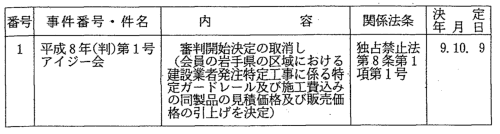 番号 事件番号・件名 内 容 関係法条 決 定
年 月 日
1 平成8年(判)第1号 審判開始決定の取消し 独占禁止法 9.10. 9
アイジー会 (会員の岩手県の区域における 第8条第1
建設業者発注特定工事に係る特 項第1号
定ガードレール及び施工費込み
の同製品の見積価格及び販売価
格の引上げを決定)